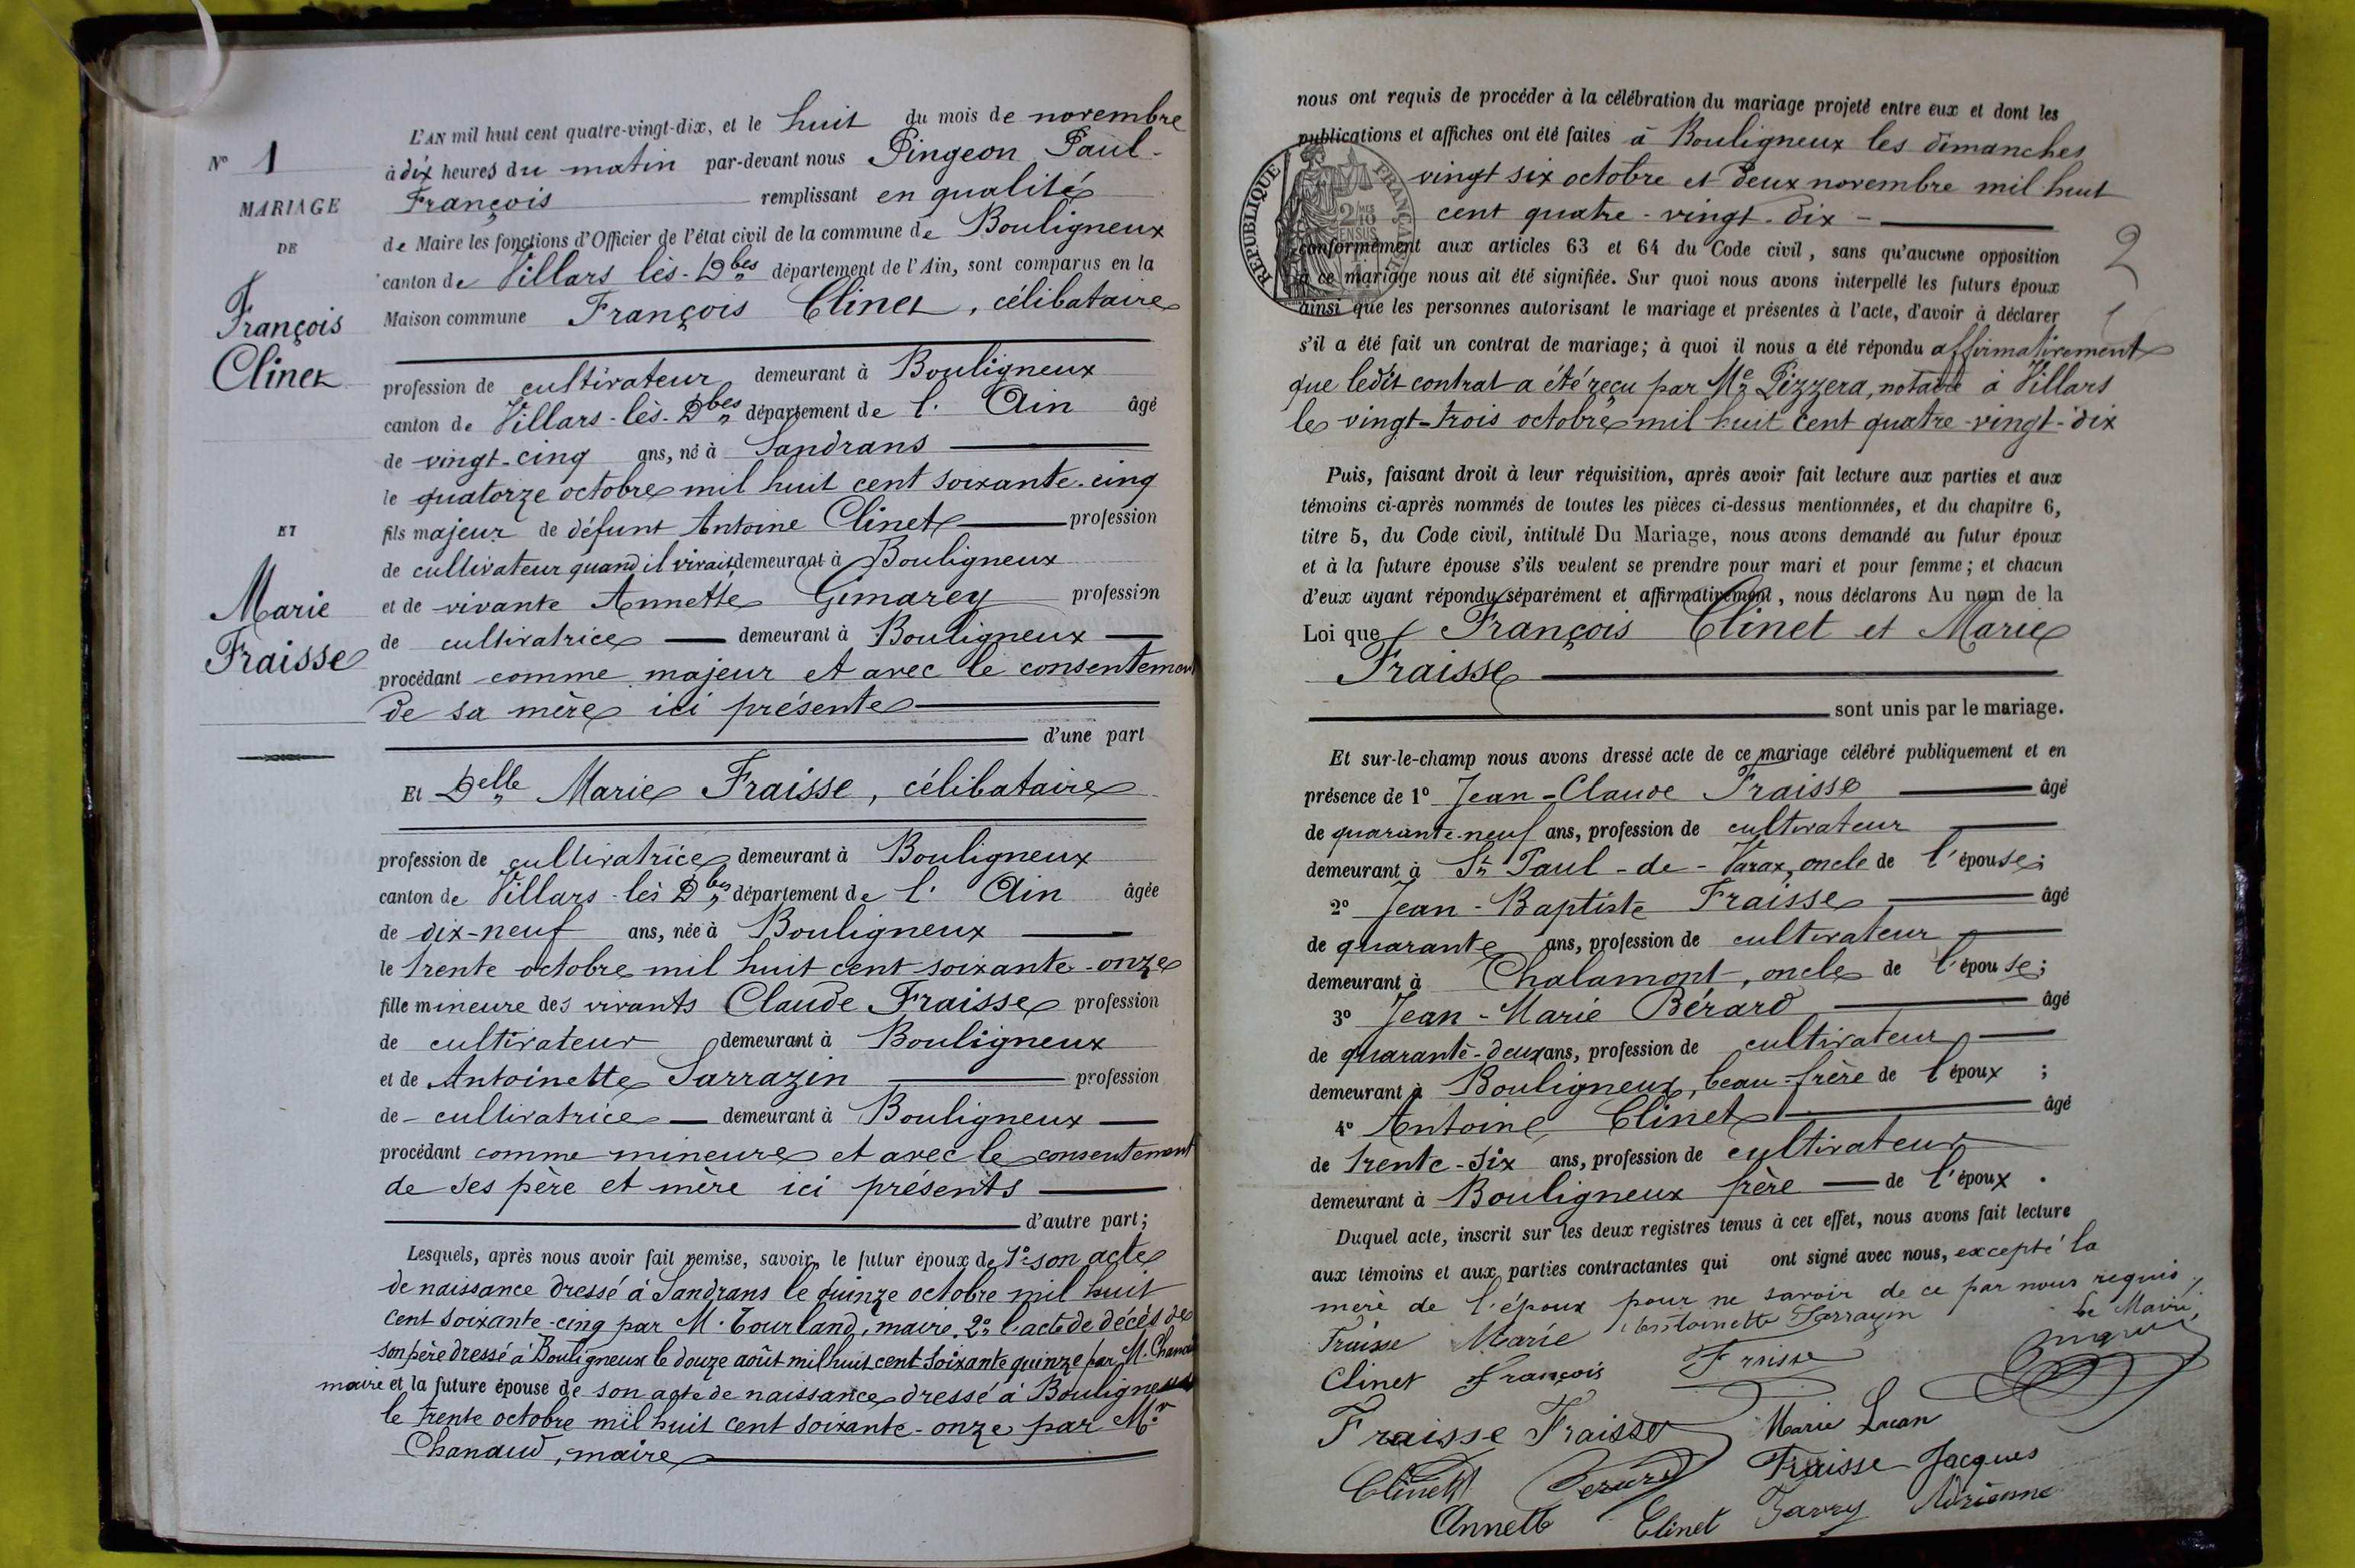 L'AN mil huit cent quatre-vingt-dix, et le huit du mois de novembre
N° 1
à dix heures du matin par-devant nous Pingeon Paul-
MARIAGE
François remplissant en qualité
DE
de Maire les fonctions d'Officier de l'état civil de la commune de Bouligneux
canton de Villars lès-Dbes département de l'Ain, sont comparus en la
François
Clinet
Maison commune François Clinet, célibataire
profession de cultivateur demeurant à Bouligneux
canton de Villars-lès-Dbes département de l'Ain âgé
de vingt-cinq ans, né à Sandrans
le quatorze octobre mil huit cent soixante-cinq
ET
fils majeur de défunt Antoine Clinet profession
de cultivateur quand il vivait, demeurant à Bouligneux
Marie
Fraisse
et de vivante Annette Gimarey profession
de cultivatrice demeurant à Bouligneux
procédant comme majeur et avec le consentement
de sa mère ici présente
d'une part
Et Delle Marie Fraisse, célibataire
profession de cultivatrice demeurant à Bouligneux
canton de Villars-lès Dbes département de l'Ain âgée
de dix-neuf ans, née à Bouligneux
le trente octobre mil huit cent soixante-onze
fille mineure des vivants Claude Fraisse profession
de cultivateur demeurant à Bouligneux
et de Antoinette Sarrazin profession
de cultivatrice demeurant à Bouligneux
procédant comme mineure et avec le consentement
de ses père et mère ici présents
d'autre part;
Lesquels, après nous avoir fait remise, savoir, le futur époux de 1° son acte
de naissance dressé à Sandrans le quinze octobre mil huit
cent soixante-cinq par M. Tourland, maire, 2° l'acte de décès de
son père dressé à Bouligneux le douze août mil huit cent soixante quinze par M. Chanaud
maire et la future épouse de son acte de naissance dressé à Bouligneux
le trente octobre mil huit cent soixante-onze par Mr
Chanaud, maire
nous ont requis de procéder à la célébration du mariage projeté entre eux et dont les
publications et affiches ont été faites à Bouligneux les dimanches
vingt six octobre et deux novembre mil huit
cent quatre-vingt-dix
RÉPUBLIQUE FRANÇAISE
2/10
EN SUS
2
conformément aux articles 63 et 64 du Code civil, sans qu'aucune opposition
à ce mariage nous ait été signifiée. Sur quoi nous avons interpellé les futurs époux
ainsi que les personnes autorisant le mariage et présentes à l'acte, d'avoir à déclarer
s'il a été fait un contrat de mariage; à quoi il nous a été répondu affirmativement
que ledit contrat a été reçu par Me Pizzera, notaire à Villars
le vingt-trois octobre mil huit cent quatre-vingt-dix
Puis, faisant droit à leur réquisition, après avoir fait lecture aux parties et aux
témoins ci-après nommés de toutes les pièces ci-dessus mentionnées, et du chapitre 6,
titre 5, du Code civil, intitulé Du Mariage, nous avons demandé au futur époux
et à la future épouse s'ils veulent se prendre pour mari et pour femme; et chacun
d'eux ayant répondu séparément et affirmativement, nous déclarons Au nom de la
Loi que François Clinet et Marie
Fraisse
sont unis par le mariage.
Et sur-le-champ nous avons dressé acte de ce mariage célébré publiquement et en
présence de 1° Jean-Claude Fraisse âgé
de quarante-neuf ans, profession de cultivateur
demeurant à St Paul-de-Varax, oncle de l'épouse;
2° Jean-Baptiste Fraisse âgé
de quarante ans, profession de cultivateur
demeurant à Chalamont, oncle de l'épouse;
3° Jean-Marie Bérard âgé
de quarante-deux ans, profession de cultivateur
demeurant à Bouligneux, beau-frère de l'époux;
4° Antoine Clinet âgé
de trente-six ans, profession de cultivateur
demeurant à Bouligneux frère de l'époux.
Duquel acte, inscrit sur les deux registres tenus à cet effet, nous avons fait lecture
aux témoins et aux parties contractantes qui ont signé avec nous, excepté la
mère de l'époux pour ne savoir de ce par nous requis.
Fraisse Marie Antoinette Sarrazin Le Maire,
Clinet François Fraisse
Fraisse Fraisse Marie
Clinet Berard Fraisse Jacques
Annette Clinet Adrienne